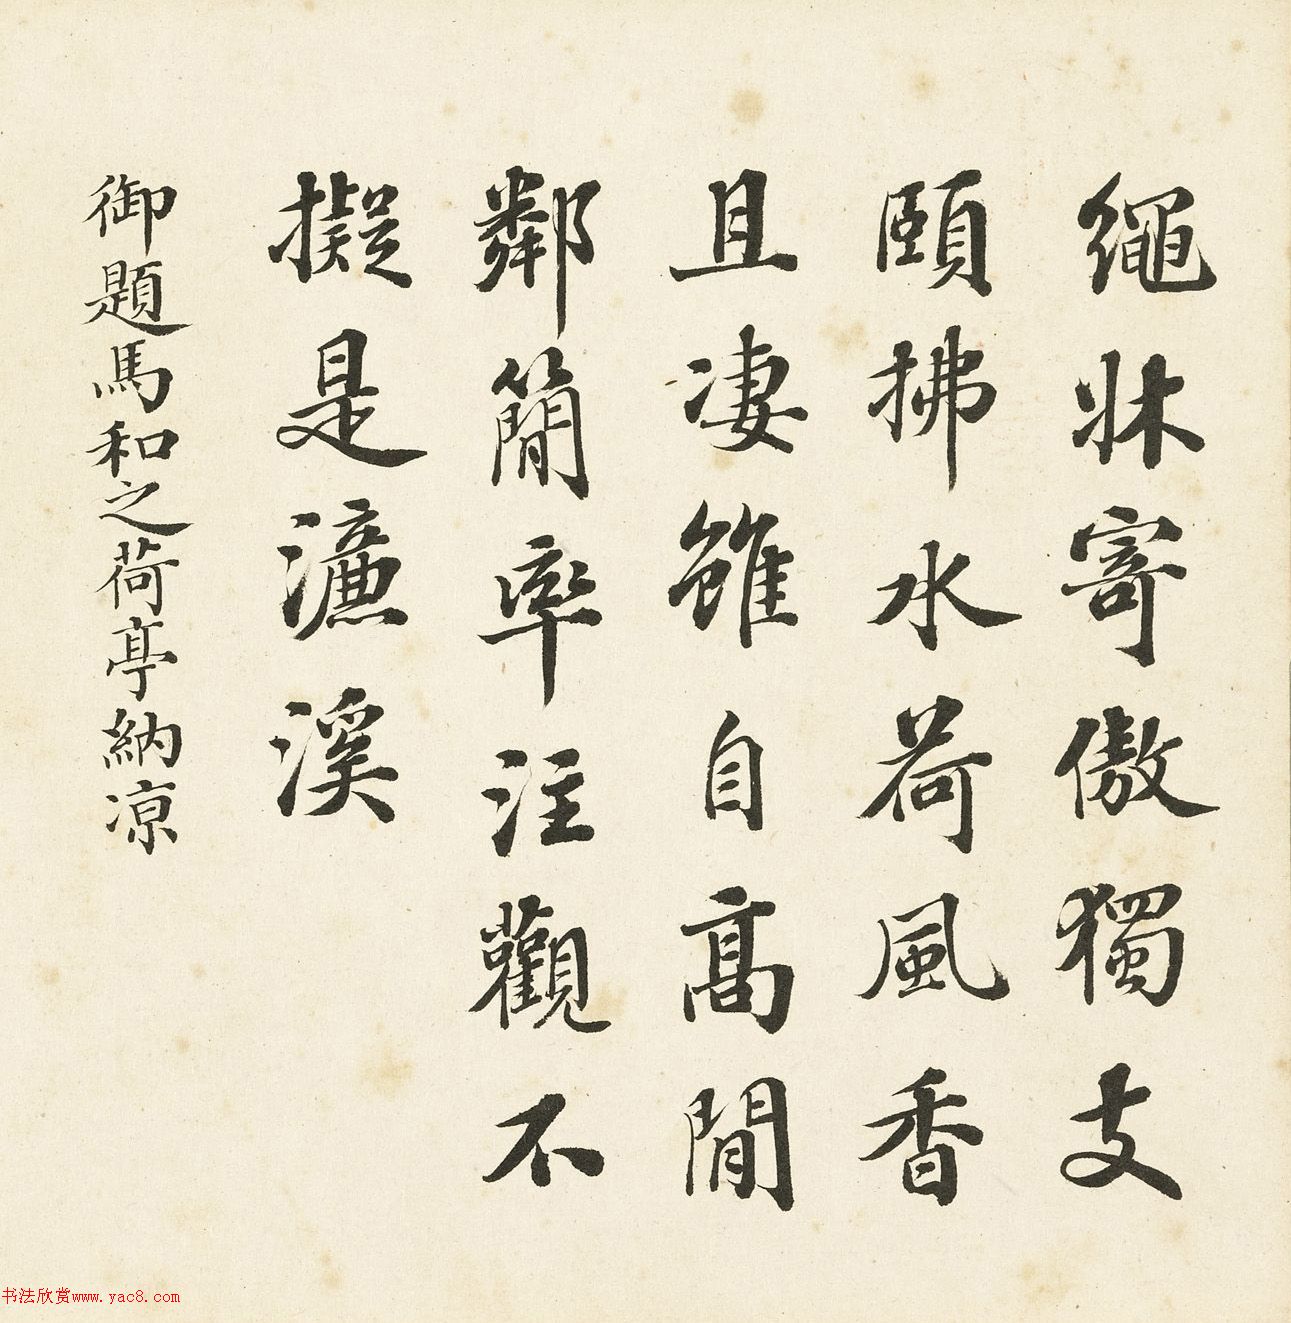 繩牀寄傲獨支
頤拂水荷風香
且淒雖自高閒
鄰簡率注觀不
擬是濂溪
御題馬和之荷亭納涼
书法欣赏www.yac8.com